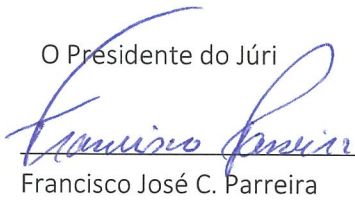 O Presidente do Júri
Francisco Parreira
Francisco José C. Parreira